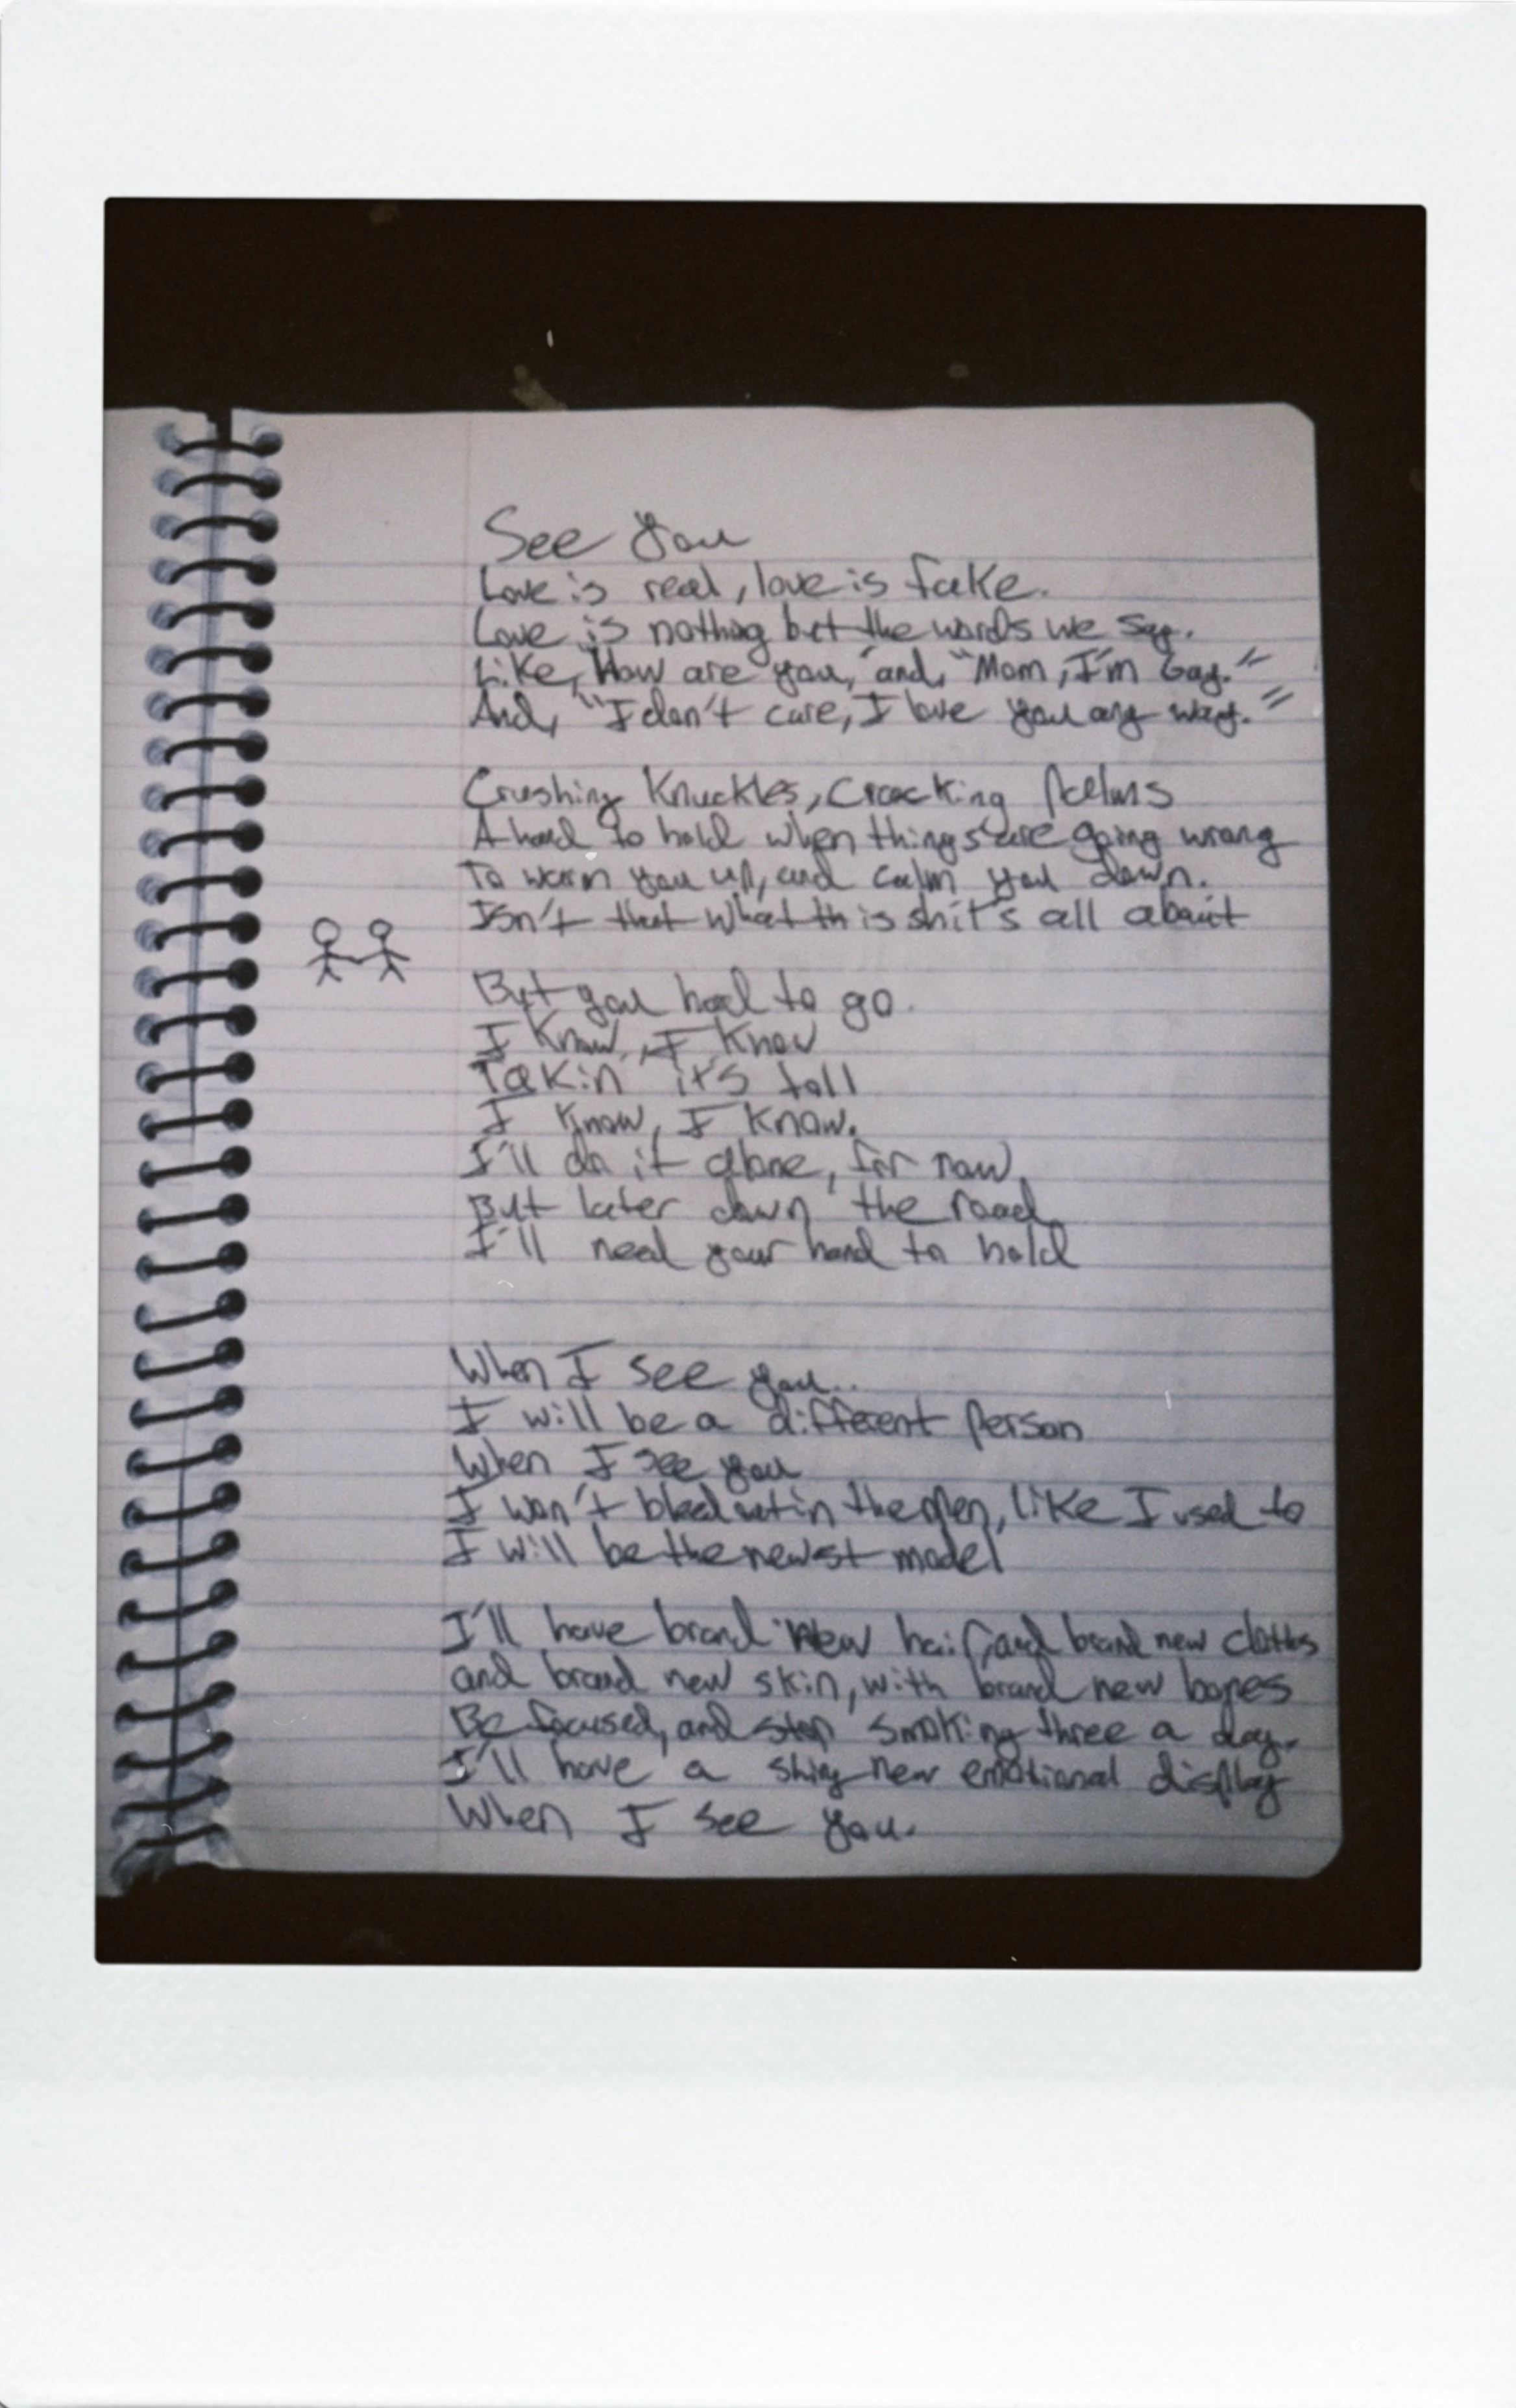 See You
Love is real, love is fake.
Love is nothing but the words we say.
Like, "How are you," and, "Mom, I'm Gay."
And, "I don't care, I love you any way."
Crushing Knuckles, Cracking Palms
A hand to hold when things are going wrong
To warm you up, and calm you down.
Isn't that what this shit's all about
But you had to go.
I Know, I Know
Takin' it's toll
I Know, I Know.
I'll do it alone, for now,
But later down the road,
I'll need your hand to hold
When I see you..
I will be a different Person
When I see you
I won't bleed out in the open, like I used to
I will be the newst model
I'll have brand new hair, and brand new clothes
and brand new skin, with brand new bones
Be focused, and stop smoking three a day.
I'll have a shiny new emotional display
When I see you.